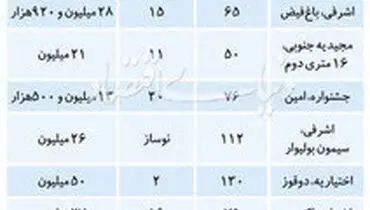 اشرفی، باغ‌فیض ۶۵ ۱۵ ۲۸ میلیون و ۹۲۰هزار
مجیدیه جنوبی، ۱۶ متری دوم ۵۰ ۱۱ ۲۱ میلیون
جشنواره، امین ۷۶ ۲۰ ۱۳ میلیون و ۵۰۰هزار
اشرفی، سیمون بولیوار ۱۱۲ نوساز ۲۶ میلیون
اختیاریه، دوقوز ۱۳۰ ۲ ۵۰ میلیون